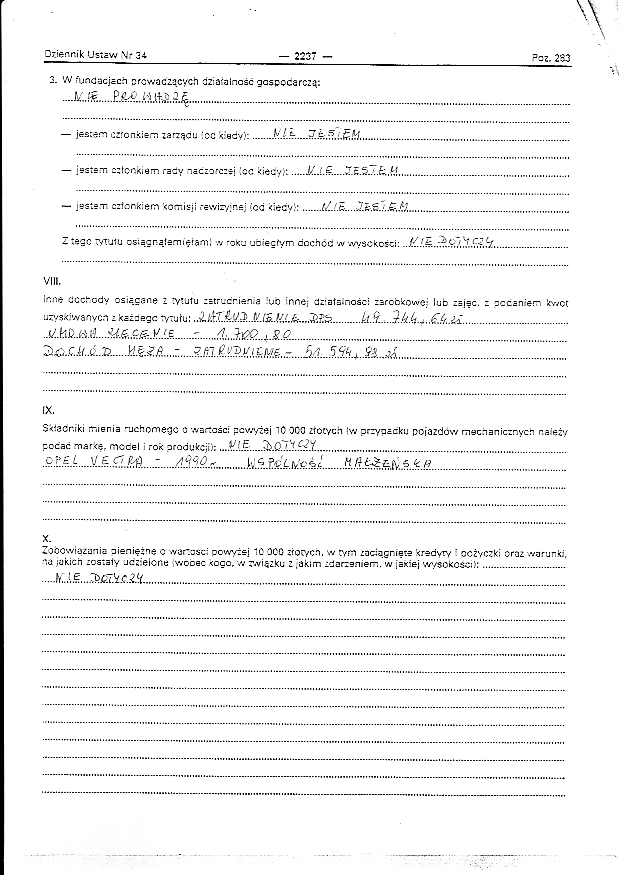 Dziennik Ustaw Nr 34 — 2237 — Poz. 283
3. W fundacjach prowadzących działalność gospodarczą:
NIE PROWADZĘ
— jestem członkiem zarządu (od kiedy): NIE JESTEM
— jestem członkiem rady nadzorczej (od kiedy): NIE JESTEM
— jestem członkiem komisji rewizyjnej (od kiedy): NIE JESTEM
Z tego tytułu osiągnąłem(ęłam) w roku ubiegłym dochód w wysokości: NIE DOTYCZY
VIII.
Inne dochody osiągane z tytułu zatrudnienia lub innej działalności zarobkowej lub zajęć, z podaniem kwot
uzyskiwanych z każdego tytułu: ZATRUDNIENIE DPS 49 744,64 zł
UMOWA ZLECENIE – 1.700,80
DOCHÓD MĘŻA – ZATRUDNIENIE – 51 594,98 zł
IX.
Składniki mienia ruchomego o wartości powyżej 10 000 złotych (w przypadku pojazdów mechanicznych należy
podać markę, model i rok produkcji): NIE DOTYCZY
OPEL VECTRA – 1990r WSPÓLNOŚĆ MAŁŻEŃSKA
X.
Zobowiązania pieniężne o wartości powyżej 10 000 złotych, w tym zaciągnięte kredyty i pożyczki oraz warunki,
na jakich zostały udzielone (wobec kogo, w związku z jakim zdarzeniem, w jakiej wysokości):
NIE DOTYCZY